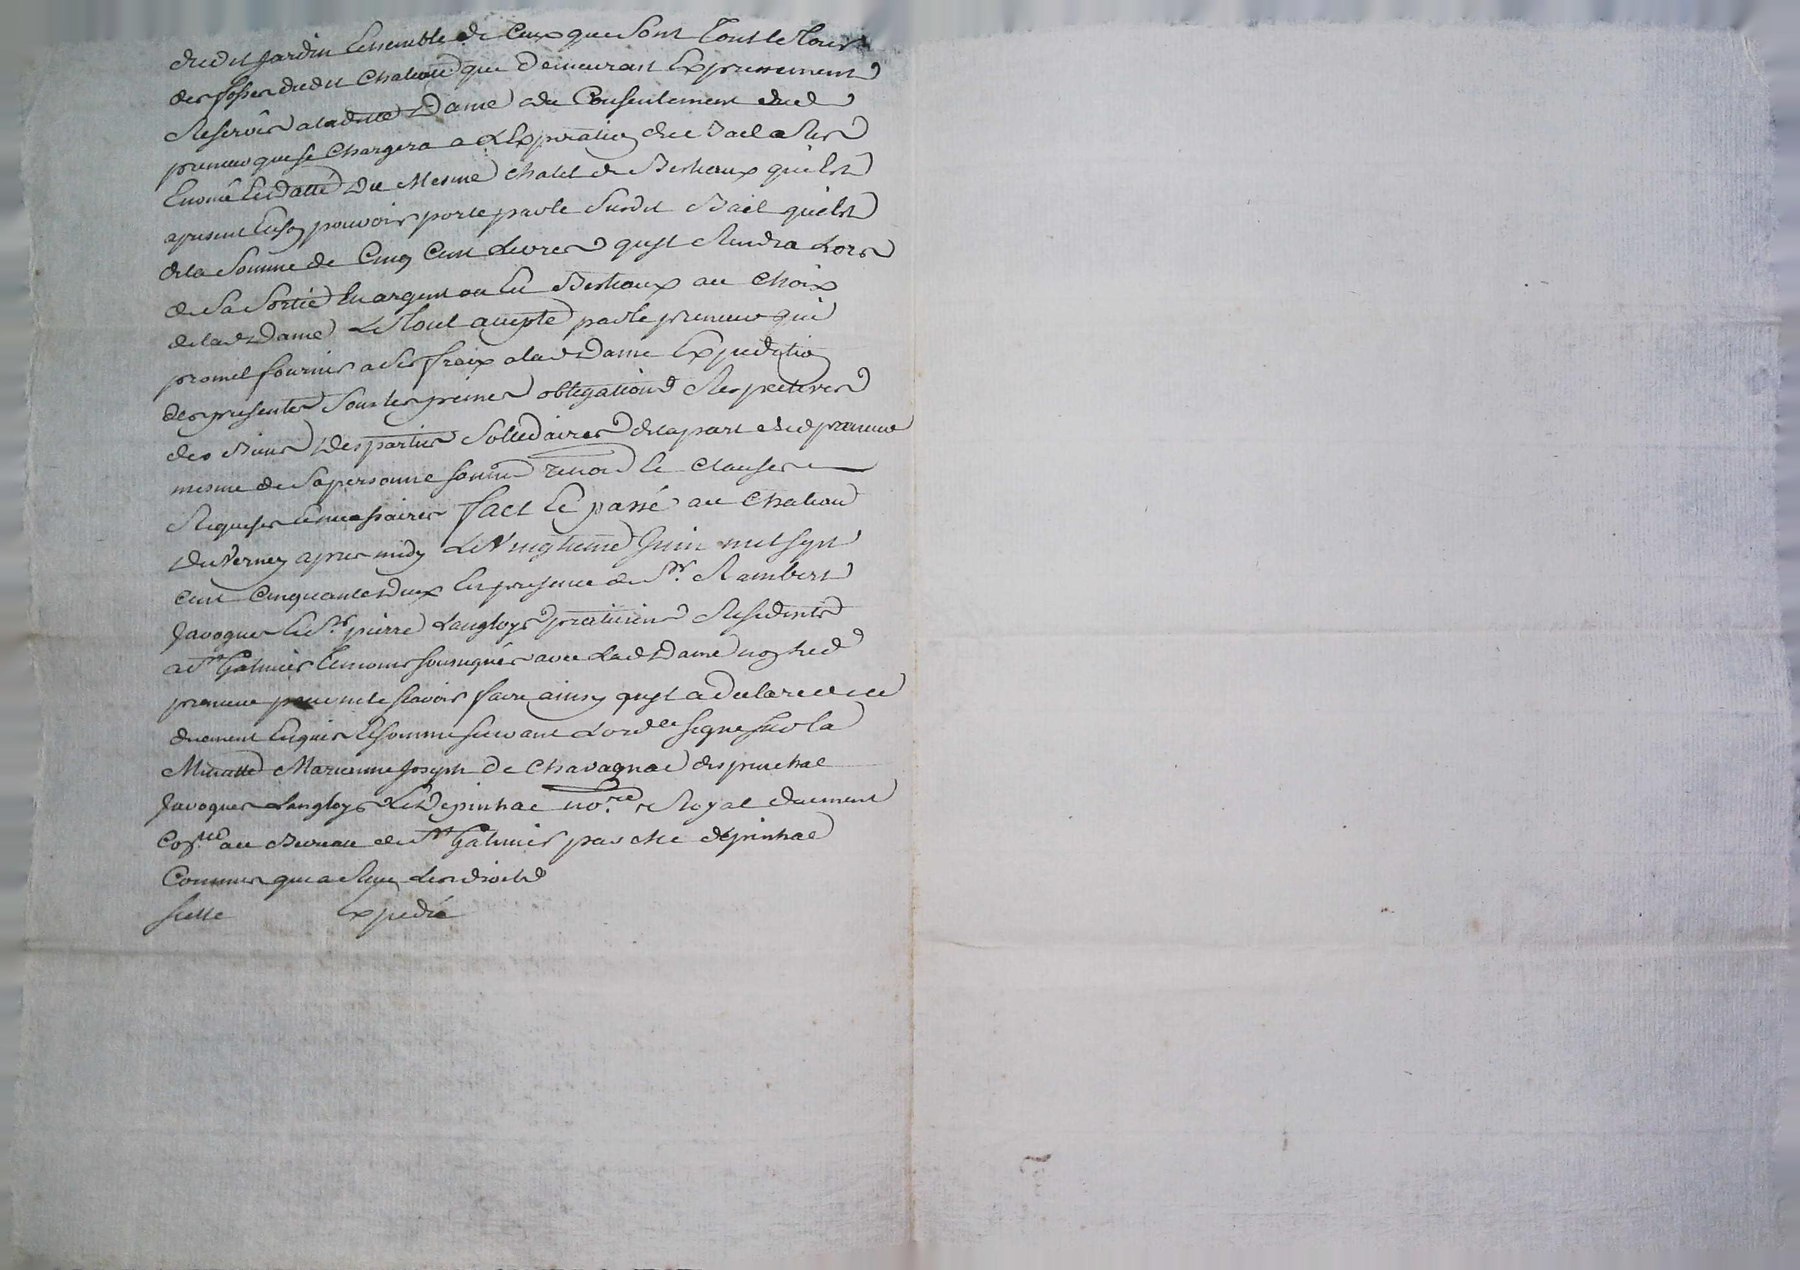 dudit Jardin Ensemble de Ceux que sont Tout le Tour
des fossés dudit Chateau que demeurant Expressement
Reservés a laditte Dame du Consentement dud
preneur que se Chargera a L'Expiration du Bail
du Mesme chatel de Bestiaux qu'il est
pouvoir porté par le susdit Bail qu'il est
de la somme de Cinq Cent Livres qu'il Rendra Lors
de sa sortie En argent ou En Bestiaux au Choix
de lad Dame Le Tout accepté par le preneur qui
promet fournir a ses fraix a lad Dame Expedition
des presentes sous les peines obligations Respectives
des Biens des parties solidaires de la part dud preneur
mesme de sa personne renon Et Clauses
Requises Et necessaires fact Et passé au Chateau
Du Verney apres midy Le Vingtieme Juin mil sept
Cent Cinquante Deux En presence de Sr. Rambert
Javogues Et Sr. pierre Langloys praticiens Residents
a St Galmier Et nous soussignés avec Lad Dame non led
preneur pour ne le sçavoir faire ainsy qu'il a declaré de ce
duement Enquis Et sommé suivant L'ordce signé sur la
Minutte Marianne Joseph De Chavagnac
Javogues Langloys Et Depinhac nore Royal duement
au Bureau de St Galmier par Me depinhac
Commis qui a Reçu Les droits
Expedié